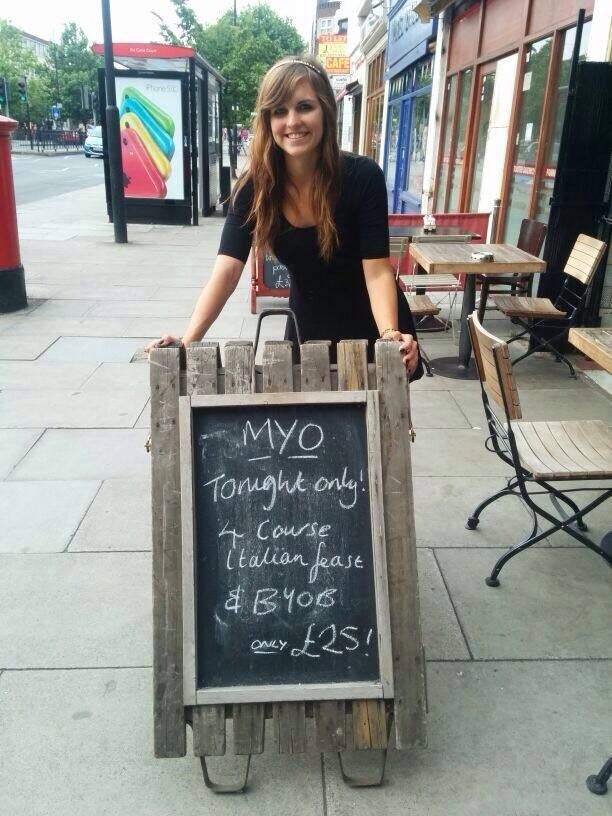 iPhone 5c
CAFE
MYO
Tonight only!
4 Course
Italian feast
& BYOB
ONLY £25!